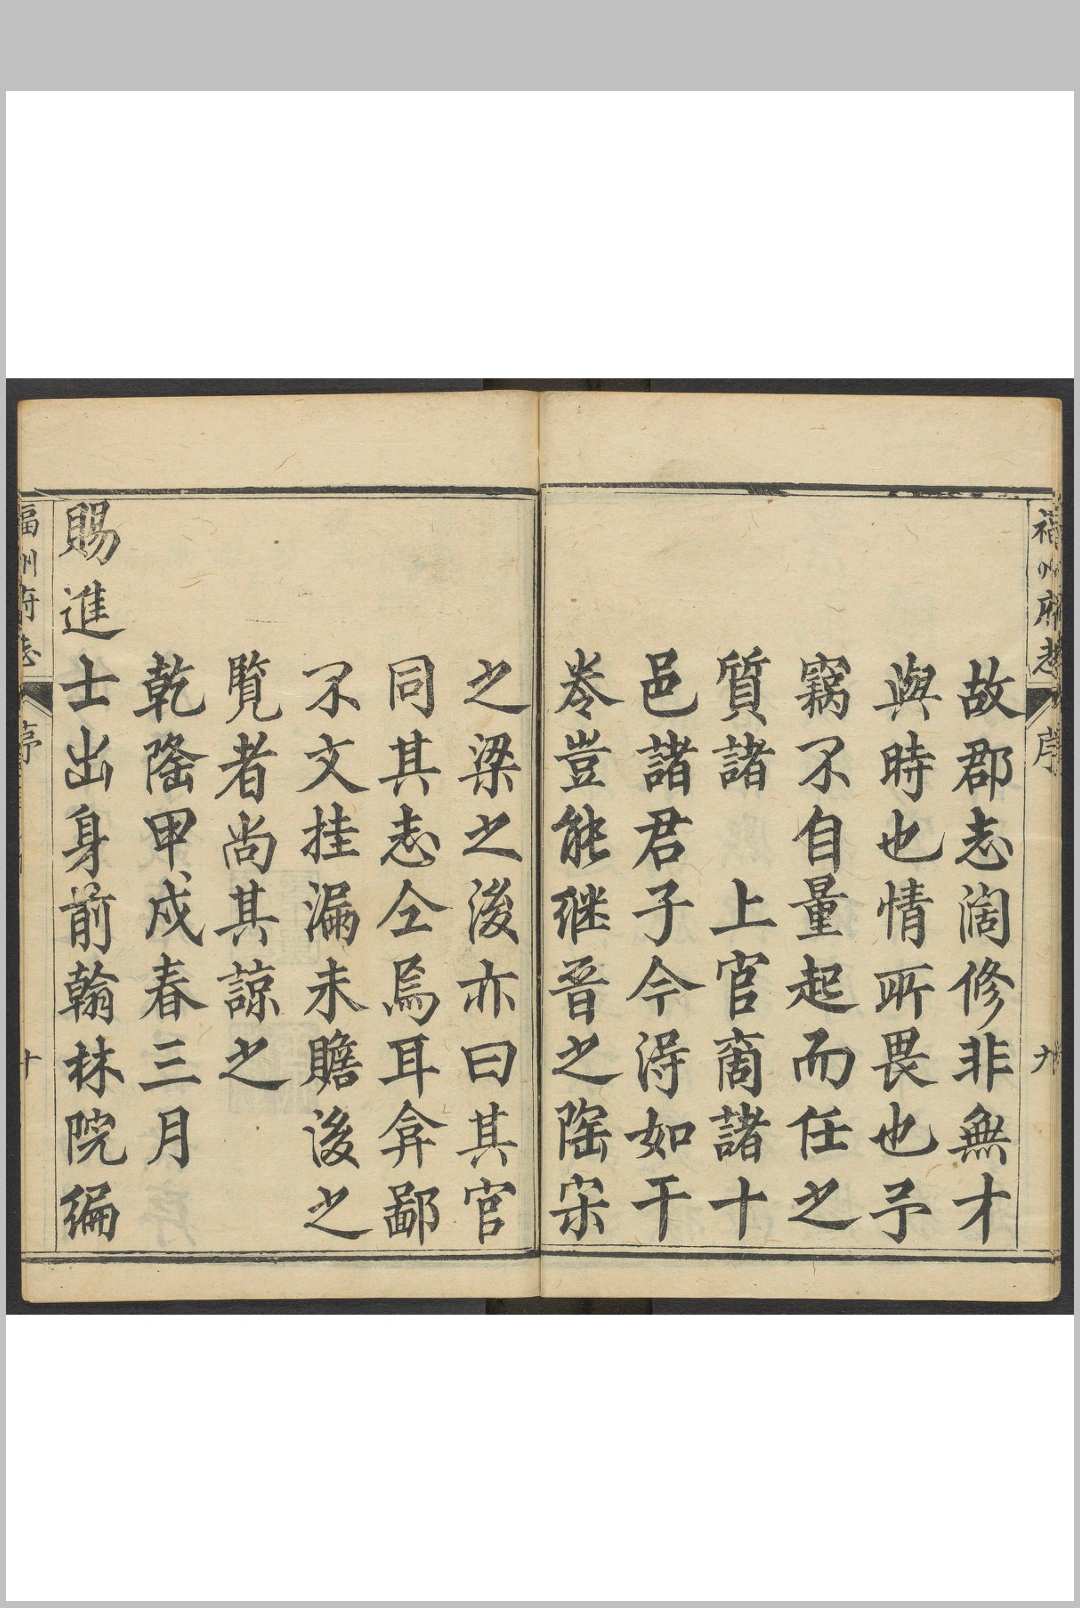 福州府志
序
九
故郡志濶修非無才
與時也情所畏也予
竊不自量起而任之
質諸 上官商諸十
邑諸君子今得如干
卷豈能继晉之陶宋
之梁之後亦曰其官
同其志仝焉耳弇鄙
不文挂漏未贍後之
覧者尚其諒之
乾隆甲戍春三月
賜進士出身前翰林院編
福州府志
序
十